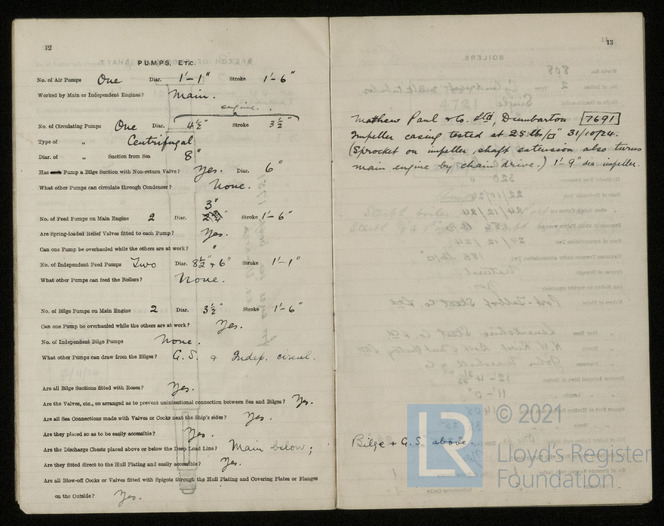 12
PUMPS, ETC.
No. of Air Pumps One Diar. 1'-1" Stroke 1'-6"
Worked by Main or Independent Engines? Main.
engine.
No. of Circulating Pumps One Diar. 4½" Stroke 3½"
Type of " Centrifugal
Diar. of " Suction from Sea 8"
Has Pump a Bilge Suction with Non-return Valve? Yes. Diar. 6"
What other Pumps can circulate through Condenser? None.
3"
No. of Feed Pumps on Main Engine 2 Diar. Stroke 1'-6"
Are Spring-loaded Relief Valves fitted to each Pump? Yes.
Can one Pump be overhauled while the others are at work? "
No. of Independent Feed Pumps Two Diar. 8½" & 6" Stroke 1'-1"
What other Pumps can feed the Boilers? None.
No. of Bilge Pumps on Main Engine 2 Diar. 3½" Stroke 1'-6"
Can one Pump be overhauled while the others are at work? Yes.
No. of Independent Bilge Pumps None.
What other Pumps can draw from the Bilges? G.S. & Indep. circul.
Are all Bilge Suctions fitted with Roses? Yes.
Are the Valves, etc., so arranged as to prevent unintentional connection between Sea and Bilges? Yes.
Are all Sea Connections made with Valves or Cocks next the Ship's sides? Yes.
Are they placed so as to be easily accessible? Yes.
Are the Discharge Chests placed above or below the Deep Load Line? Main below;
Are they fitted direct to the Hull Plating and easily accessible? Yes.
Are all Blow-off Cocks or Valves fitted with Spigots through the Hull Plating and Covering Plates or Flanges
on the Outside? Yes.
13
Mathew Paul & Co. Ltd Dumbarton 7691
Impeller casing tested at 25 lbs/□" 31/10/24.
(Sprocket on impeller shaft extension also turns
main engine by chain drive.) 1'-9" dia. impeller.
Bilge + G.S. above.
LR
© 2021
Lloyd's Register
Foundation